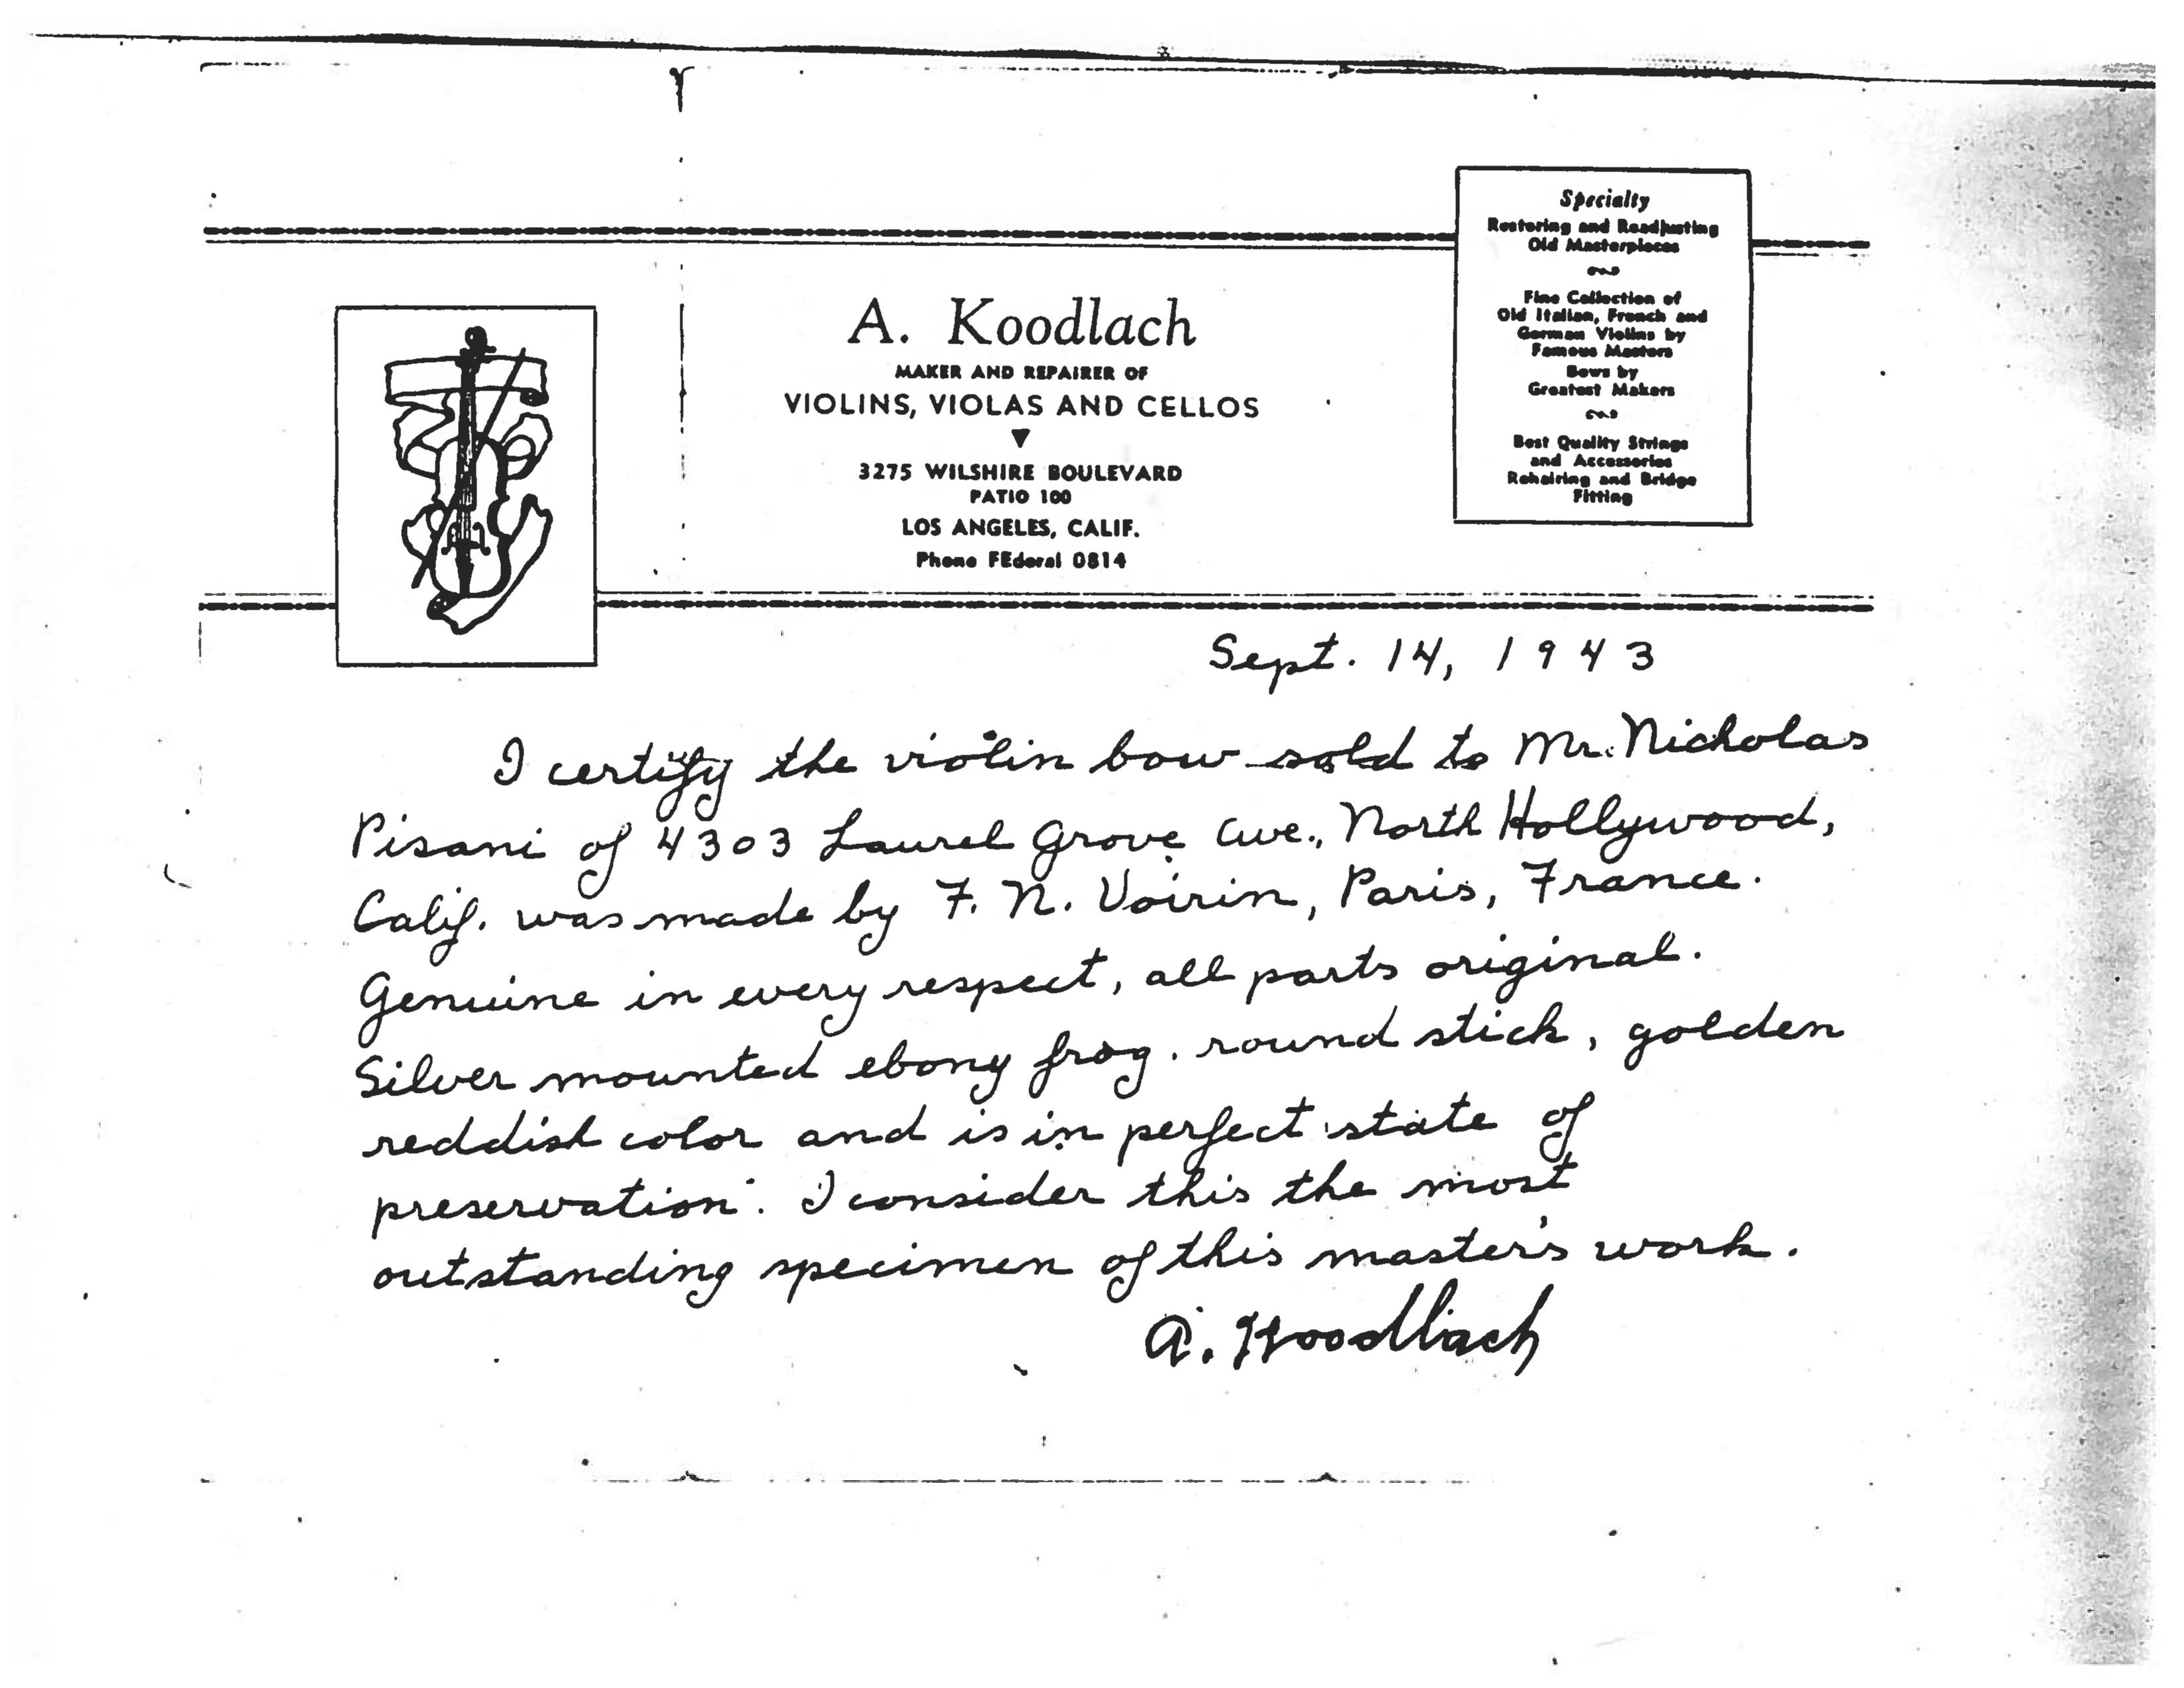 Specialty
Restoring and Readjusting
Old Masterpieces
Fine Collection of
Old Italian, French and
German Violins by
Famous Masters
Bows by
Greatest Makers
Best Quality Strings
and Accessories
Rehairing and Bridge
Fitting
A. Koodlach
MAKER AND REPAIRER OF
VIOLINS, VIOLAS AND CELLOS
3275 WILSHIRE BOULEVARD
PATIO 100
LOS ANGELES, CALIF.
Phone FEderal 0814
Sept. 14, 1943
I certify the violin bow sold to Mr. Nicholas
Pisani of 4303 Laurel Grove Ave., North Hollywood,
Calif. was made by F. N. Voirin, Paris, France.
Genuine in every respect, all parts original.
Silver mounted ebony frog. round stick, golden
reddish color and is in perfect state of
preservation. I consider this the most
outstanding specimen of this master's work.
A. Koodlach